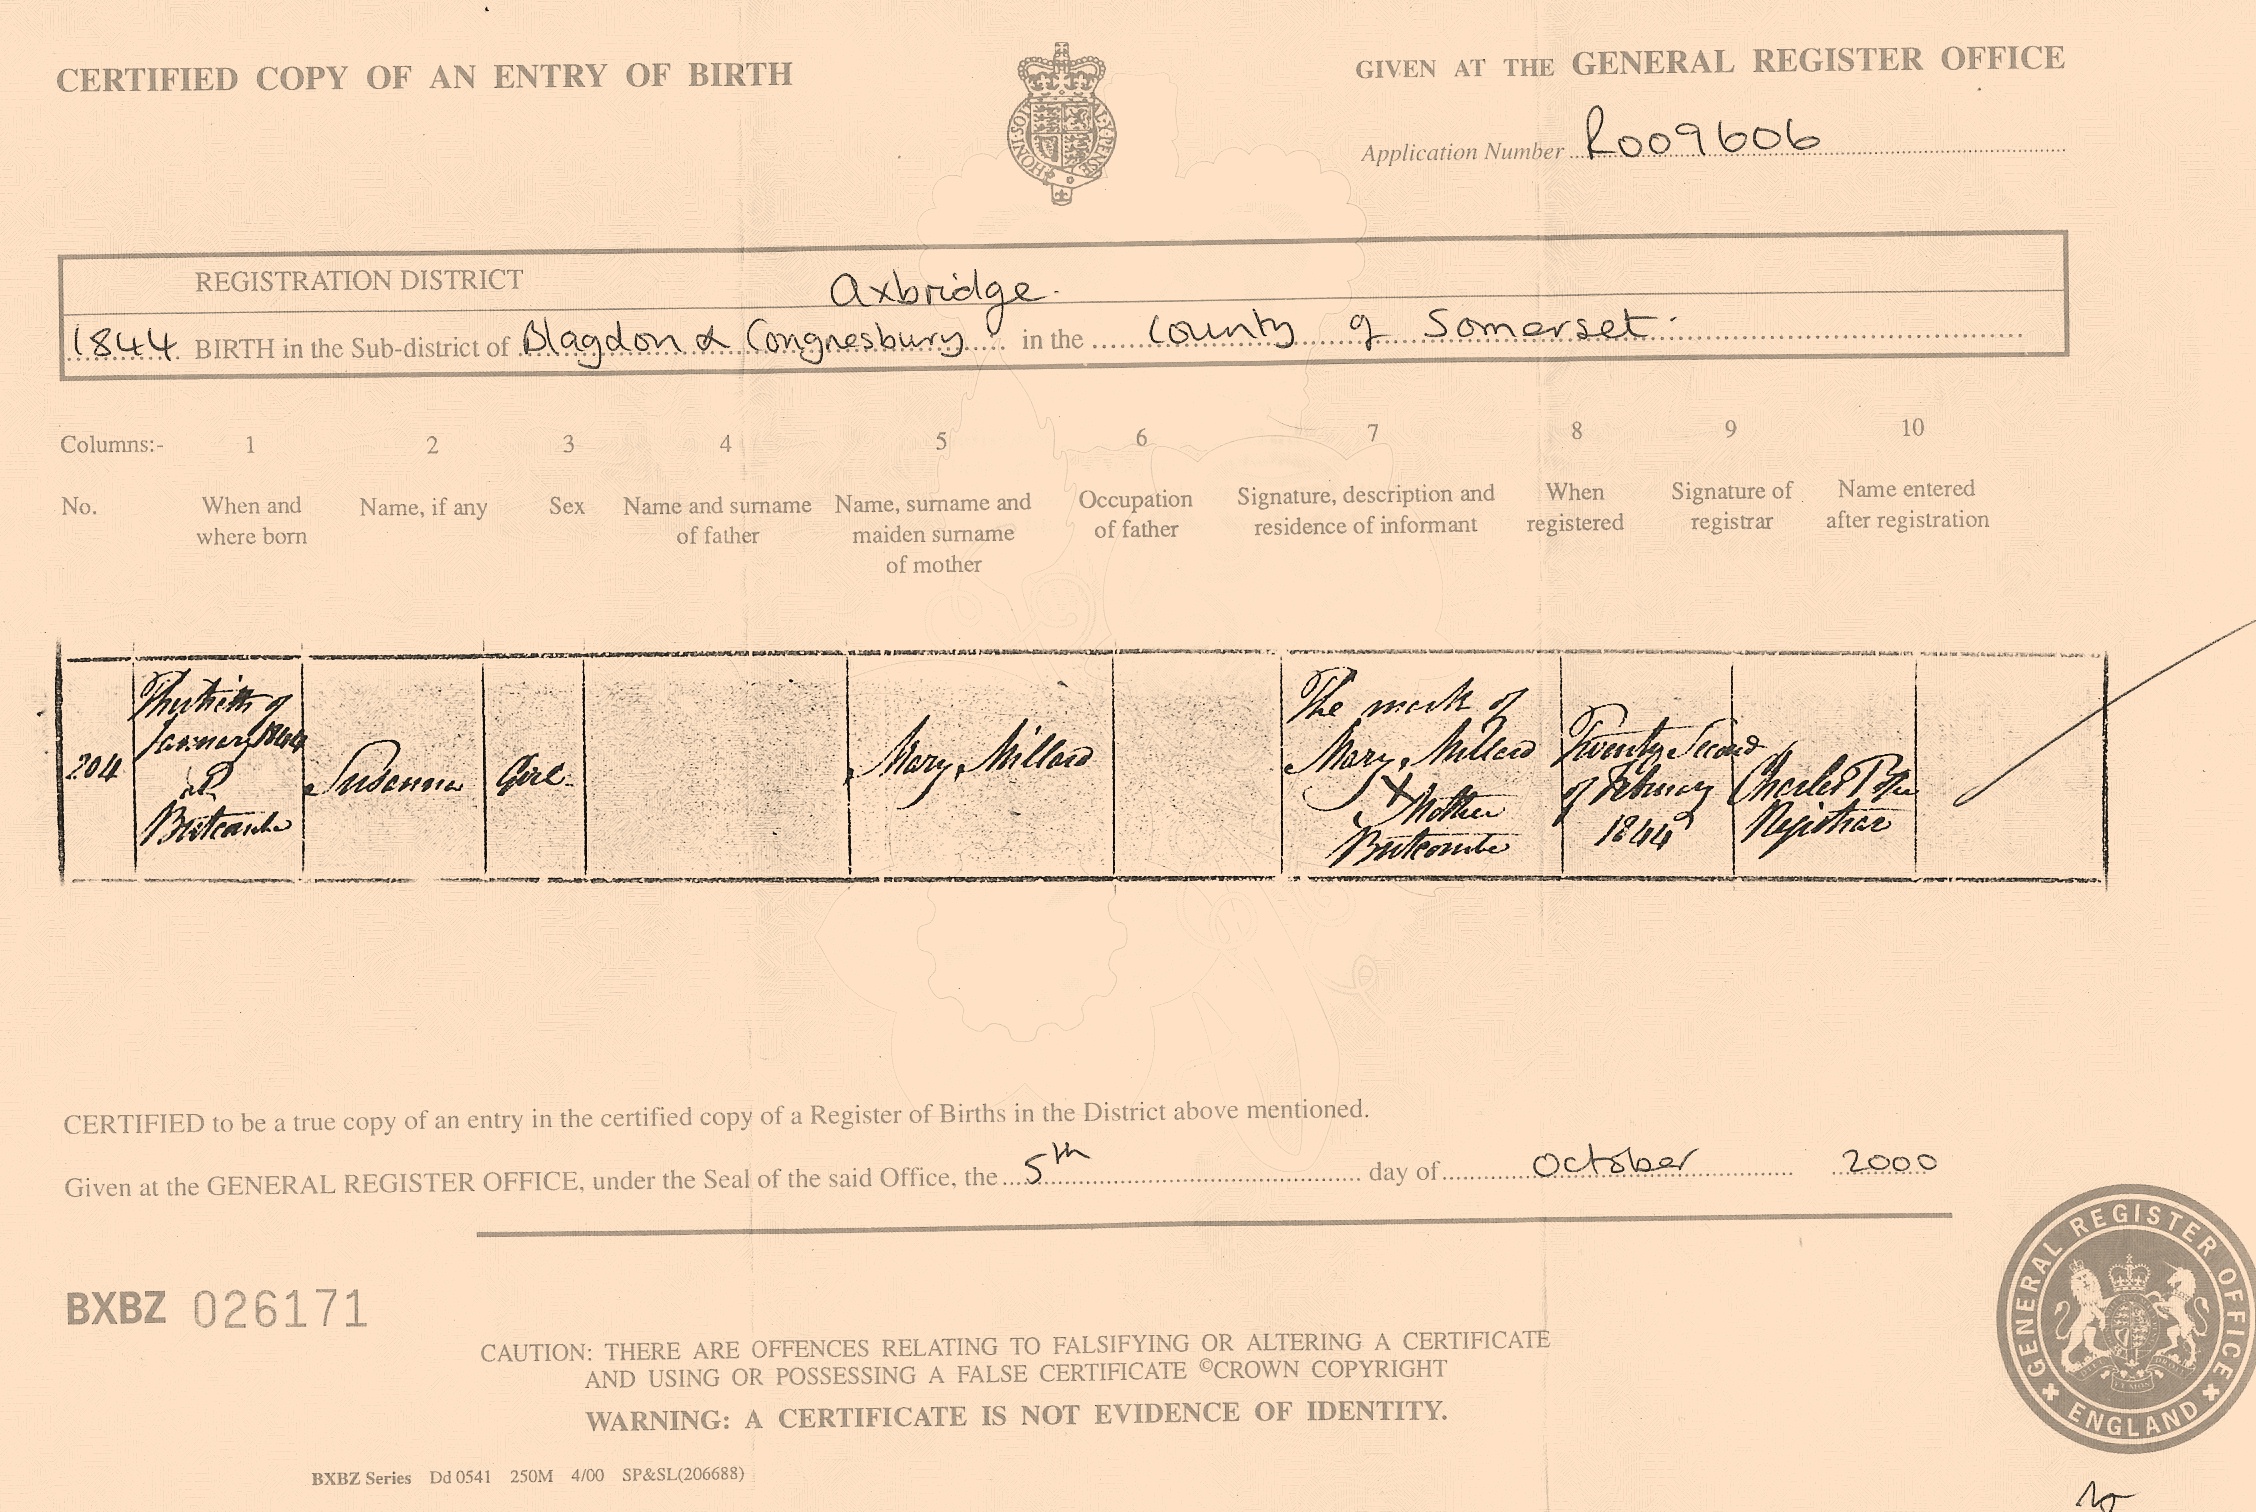 CERTIFIED COPY OF AN ENTRY OF BIRTH
HONI·SOIT Y·PENSE
GIVEN AT THE GENERAL REGISTER OFFICE
Application Number R009606
REGISTRATION DISTRICT Axbridge.
1844 BIRTH in the Sub-district of Blagdon & Congresbury in the County of Somerset.
Columns:- 1 2 3 4 5 6 7 8 9 10
No. When and Name, if any Sex Name and surname Name, surname and Occupation Signature, description and When Signature of Name entered
where born of father maiden surname of father residence of informant registered registrar after registration
of mother
204
Thirtieth of
January 1844
at
Butcombe
Susanna
Girl
Mary Millard
The mark of
Mary Millard
X
Mother
Butcombe
Twenty Second
of February
1844
Charles
Registrar
CERTIFIED to be a true copy of an entry in the certified copy of a Register of Births in the District above mentioned.
Given at the GENERAL REGISTER OFFICE, under the Seal of the said Office, the 5th day of October 2000
BXBZ 026171
CAUTION: THERE ARE OFFENCES RELATING TO FALSIFYING OR ALTERING A CERTIFICATE
AND USING OR POSSESSING A FALSE CERTIFICATE ©CROWN COPYRIGHT
WARNING: A CERTIFICATE IS NOT EVIDENCE OF IDENTITY.
GENERAL REGISTER OFFICE
ENGLAND
BXBZ Series Dd 0541 250M 4/00 SP&SL(206688)